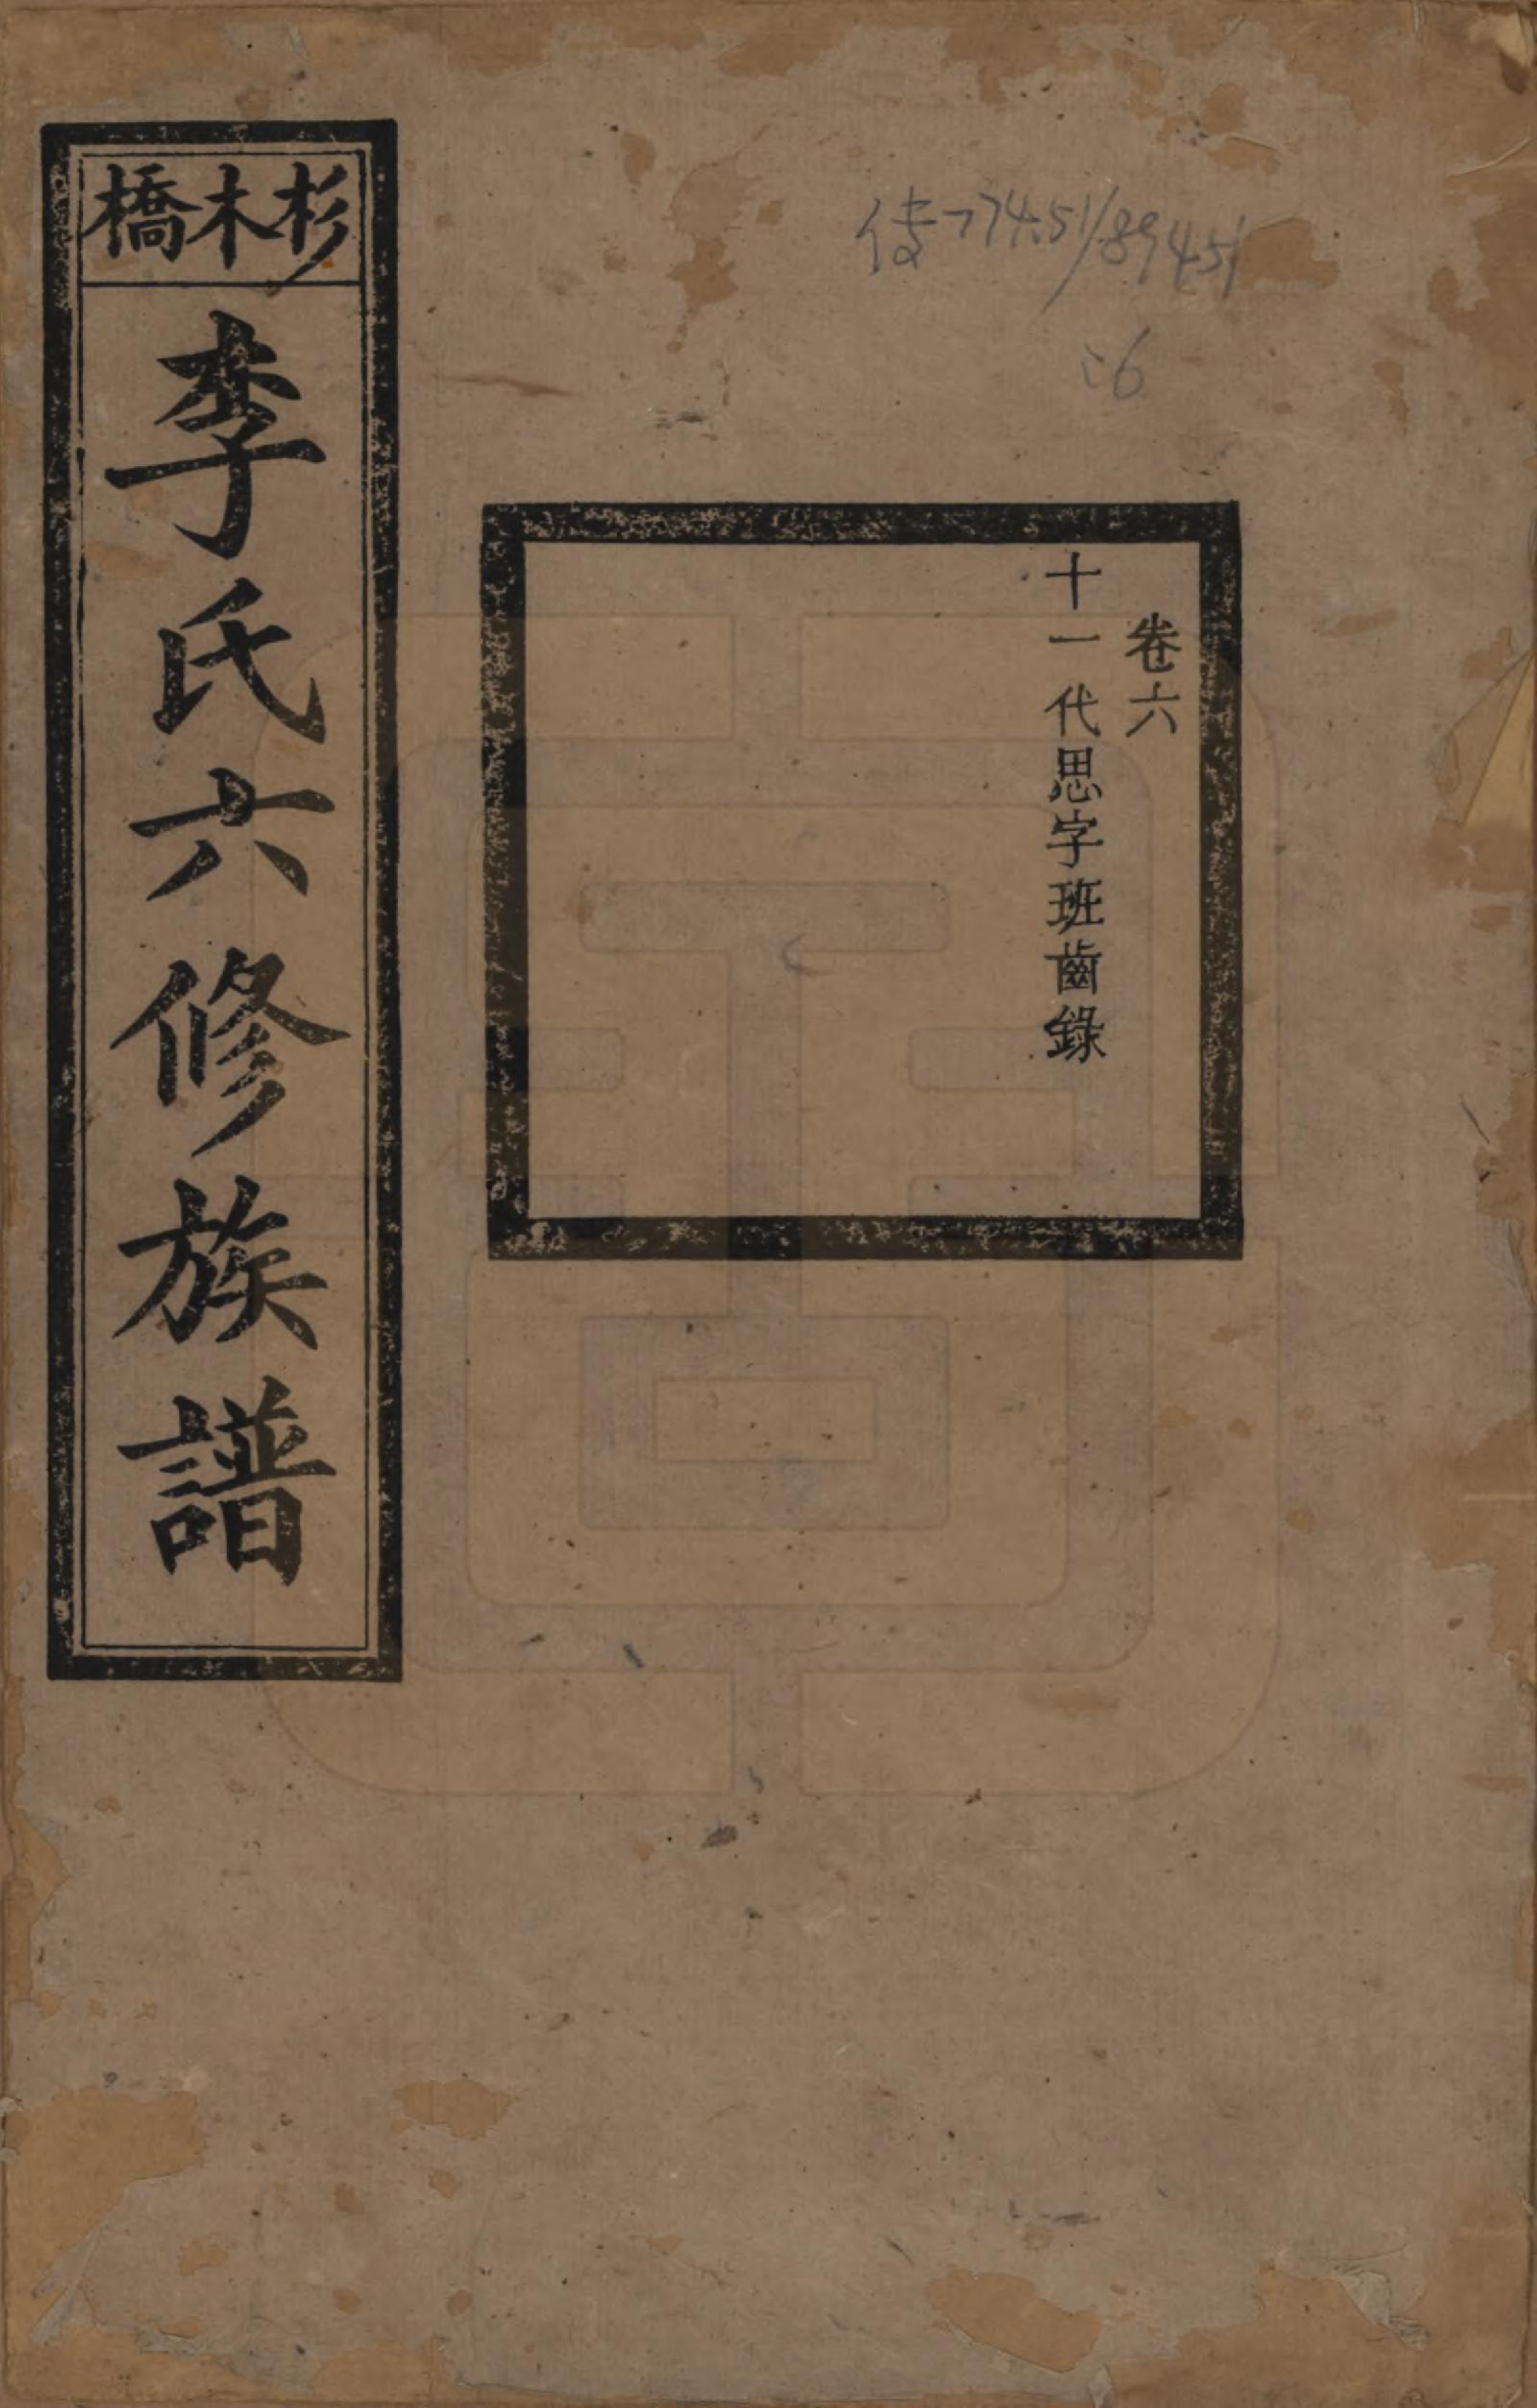 杉木橋
李氏六修族譜
卷六
十一代思字班齒錄
传774.51/894.51
:6